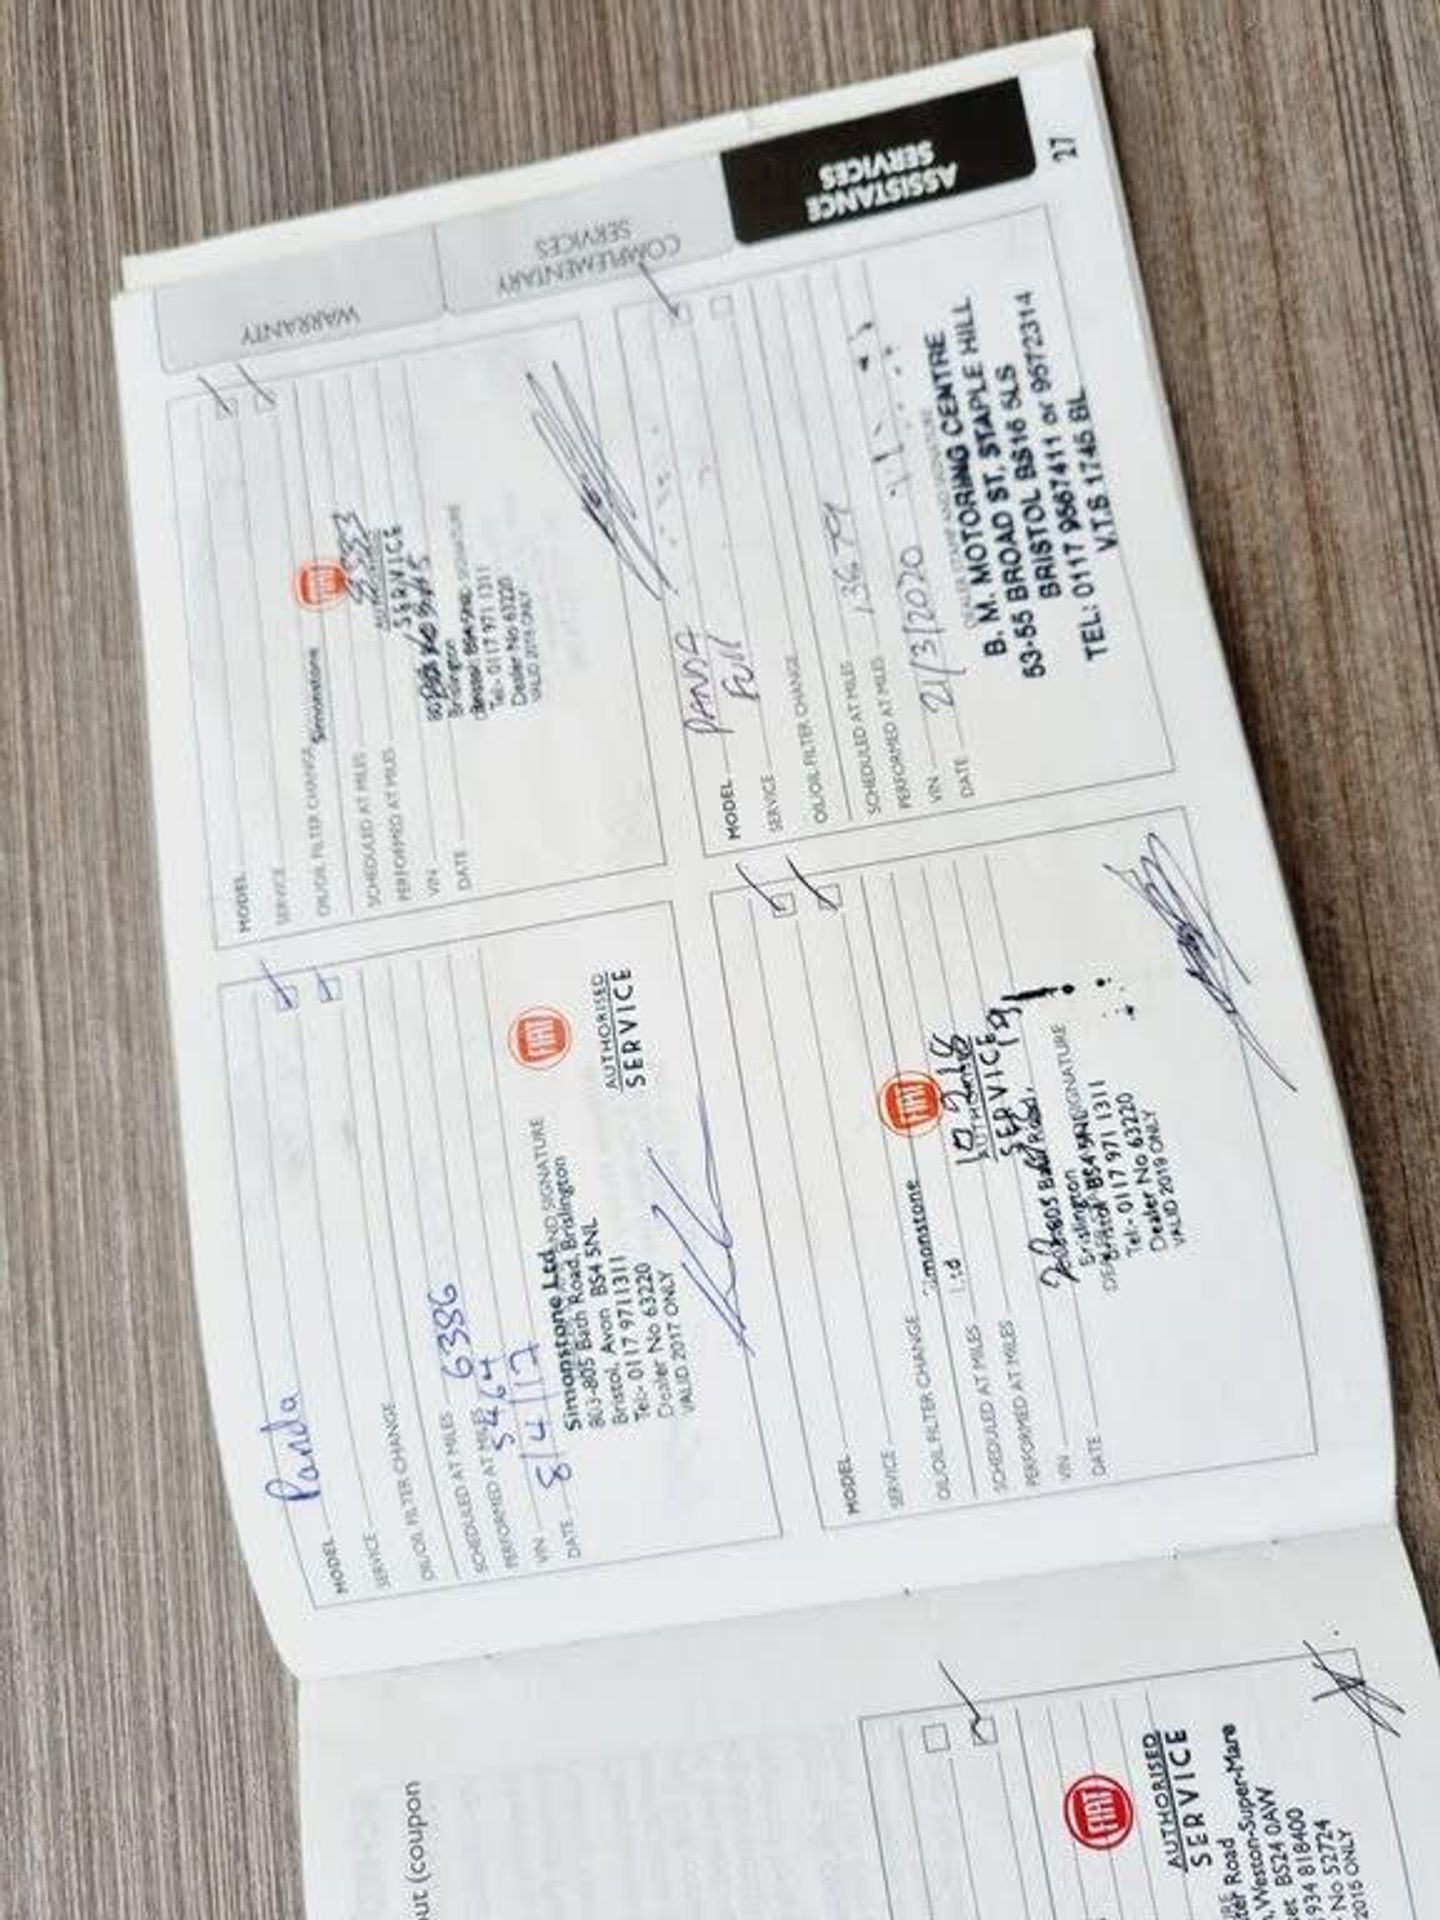 ASSISTANCE
SERVICES
COMPLEMENTARY
SERVICES
WARRANTY
27
MODEL Panda
SERVICE
OIL/OIL FILTER CHANGE
SCHEDULED AT MILES 6386
PERFORMED AT MILES 5464
VIN
DATE 8/4/17
AND SIGNATURE
Simonstone Ltd
803-805 Bath Road, Brislington
Bristol, Avon BS4 5NL
Tel:- 0117 9711311
Dealer No 63220
VALID 2017 ONLY
FIAT
AUTHORISED
SERVICE
MODEL
SERVICE
OIL/OIL FILTER CHANGE
Simonstone
SCHEDULED AT MILES
PERFORMED AT MILES
VIN
DATE
FIAT
SERVICE
Brislington
Bristol BS4 5NL
SIGNATURE
Tel:- 0117 971 1311
Dealer No 63220
MODEL
SERVICE
OIL/OIL FILTER CHANGE
Simonstone
Ltd
SCHEDULED AT MILES
PERFORMED AT MILES
VIN
DATE
FIAT
SERVICE
Brislington
SIGNATURE
Bristol BS4 5NL
Tel:- 0117 971 1311
Dealer No 63220
VALID 2019 ONLY
MODEL PANDA
SERVICE Full
OIL/OIL FILTER CHANGE
SCHEDULED AT MILES 13679
PERFORMED AT MILES
VIN
DATE 21/3/2020
DEALER STAMP AND SIGNATURE
B. M. MOTORING CENTRE
53-55 BROAD ST, STAPLE HILL
BRISTOL BS16 5LS
TEL: 0117 9567411 or 9572314
V.T.S 1745 BL
out (coupon
FIAT
AUTHORISED
SERVICE
Road
Weston-Super-Mare
BS24 0AW
934 818400
No 52724
2015 ONLY